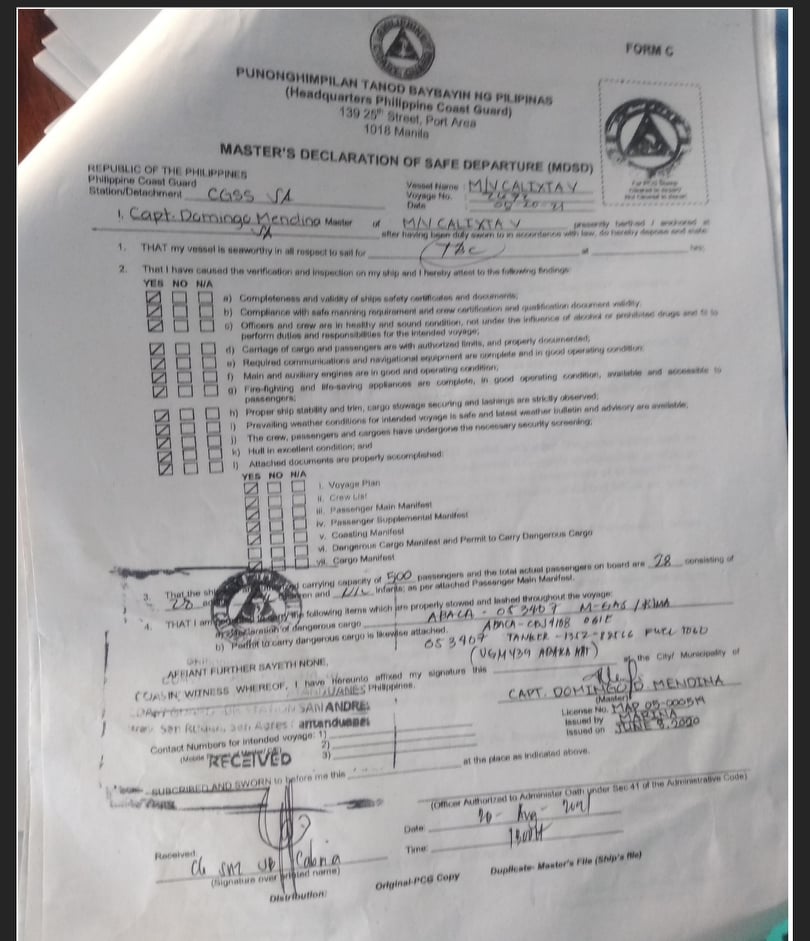 FORM C
PUNONGHIMPILAN TANOD BAYBAYIN NG PILIPINAS
(Headquarters Philippine Coast Guard)
139 25th Street, Port Area
1018 Manila
MASTER'S DECLARATION OF SAFE DEPARTURE (MDSD)
REPUBLIC OF THE PHILIPPINES
Philippine Coast Guard
Station/Detachment CGSS SA
Vessel Name : M/V CALIXTA V
Voyage No.
Date
I, Capt. Domingo Mendina Master of M/V CALIXTA V presently berthed / anchored at
after having been duly sworn to in accordance with law, do hereby depose and state:
1. THAT my vessel is seaworthy in all respect to sail for at hrs;
2. That I have caused the verification and inspection on my ship and I hereby attest to the following findings:
YES NO N/A
a) Completeness and validity of ships safety certificates and documents;
b) Compliance with safe manning requirement and crew certification and qualification document validity;
c) Officers and crew are in healthy and sound condition, not under the influence of alcohol or prohibited drugs and fit to
perform duties and responsibilities for the intended voyage;
d) Carriage of cargo and passengers are with authorized limits, and properly documented;
e) Required communications and navigational equipment are complete and in good operating condition;
f) Main and auxiliary engines are in good and operating condition;
g) Fire-fighting and life-saving appliances are complete, in good operating condition, available and accessible to
passengers;
h) Proper ship stability and trim, cargo stowage securing and lashings are strictly observed;
i) Prevailing weather conditions for intended voyage is safe and latest weather bulletin and advisory are available;
j) The crew, passengers and cargoes have undergone the necessary security screening;
k) Hull in excellent condition; and
l) Attached documents are properly accomplished:
YES NO N/A
i. Voyage Plan
ii. Crew List
iii. Passenger Main Manifest
iv. Passenger Supplemental Manifest
v. Coasting Manifest
vi. Dangerous Cargo Manifest and Permit to Carry Dangerous Cargo
vii. Cargo Manifest
3. That the ship carrying capacity of 500 passengers and the total actual passengers on board are 28 consisting of
28 and infants; as per attached Passenger Main Manifest.
4. THAT I am the following items which are properly stowed and lashed throughout the voyage:
a) declaration of dangerous cargo ABACA - 053407
b) Permit to carry dangerous cargo is likewise attached.
053407 TANKER -
AFFIANT FURTHER SAYETH NONE.
IN WITNESS WHEREOF, I have hereunto affixed my signature this at the City/ Municipality of
Philippines.
SAN ANDRES
CAPT. DOMINGO D MENDINA
(Master)
License No. MAP 05-000514
Issued by MARINA
Issued on JUNE 8, 2020
Contact Numbers for intended voyage: 1)
2)
3)
RECEIVED
SUBSCRIBED AND SWORN to before me this at the place as indicated above.
(Officer Authorized to Administer Oath under Sec 41 of the Administrative Code)
Date: 20 - Aug - 2021
Time: 1800H
Received:
(Signature over printed name)
Distribution: Original-PCG Copy Duplicate- Master's File (Ship's file)